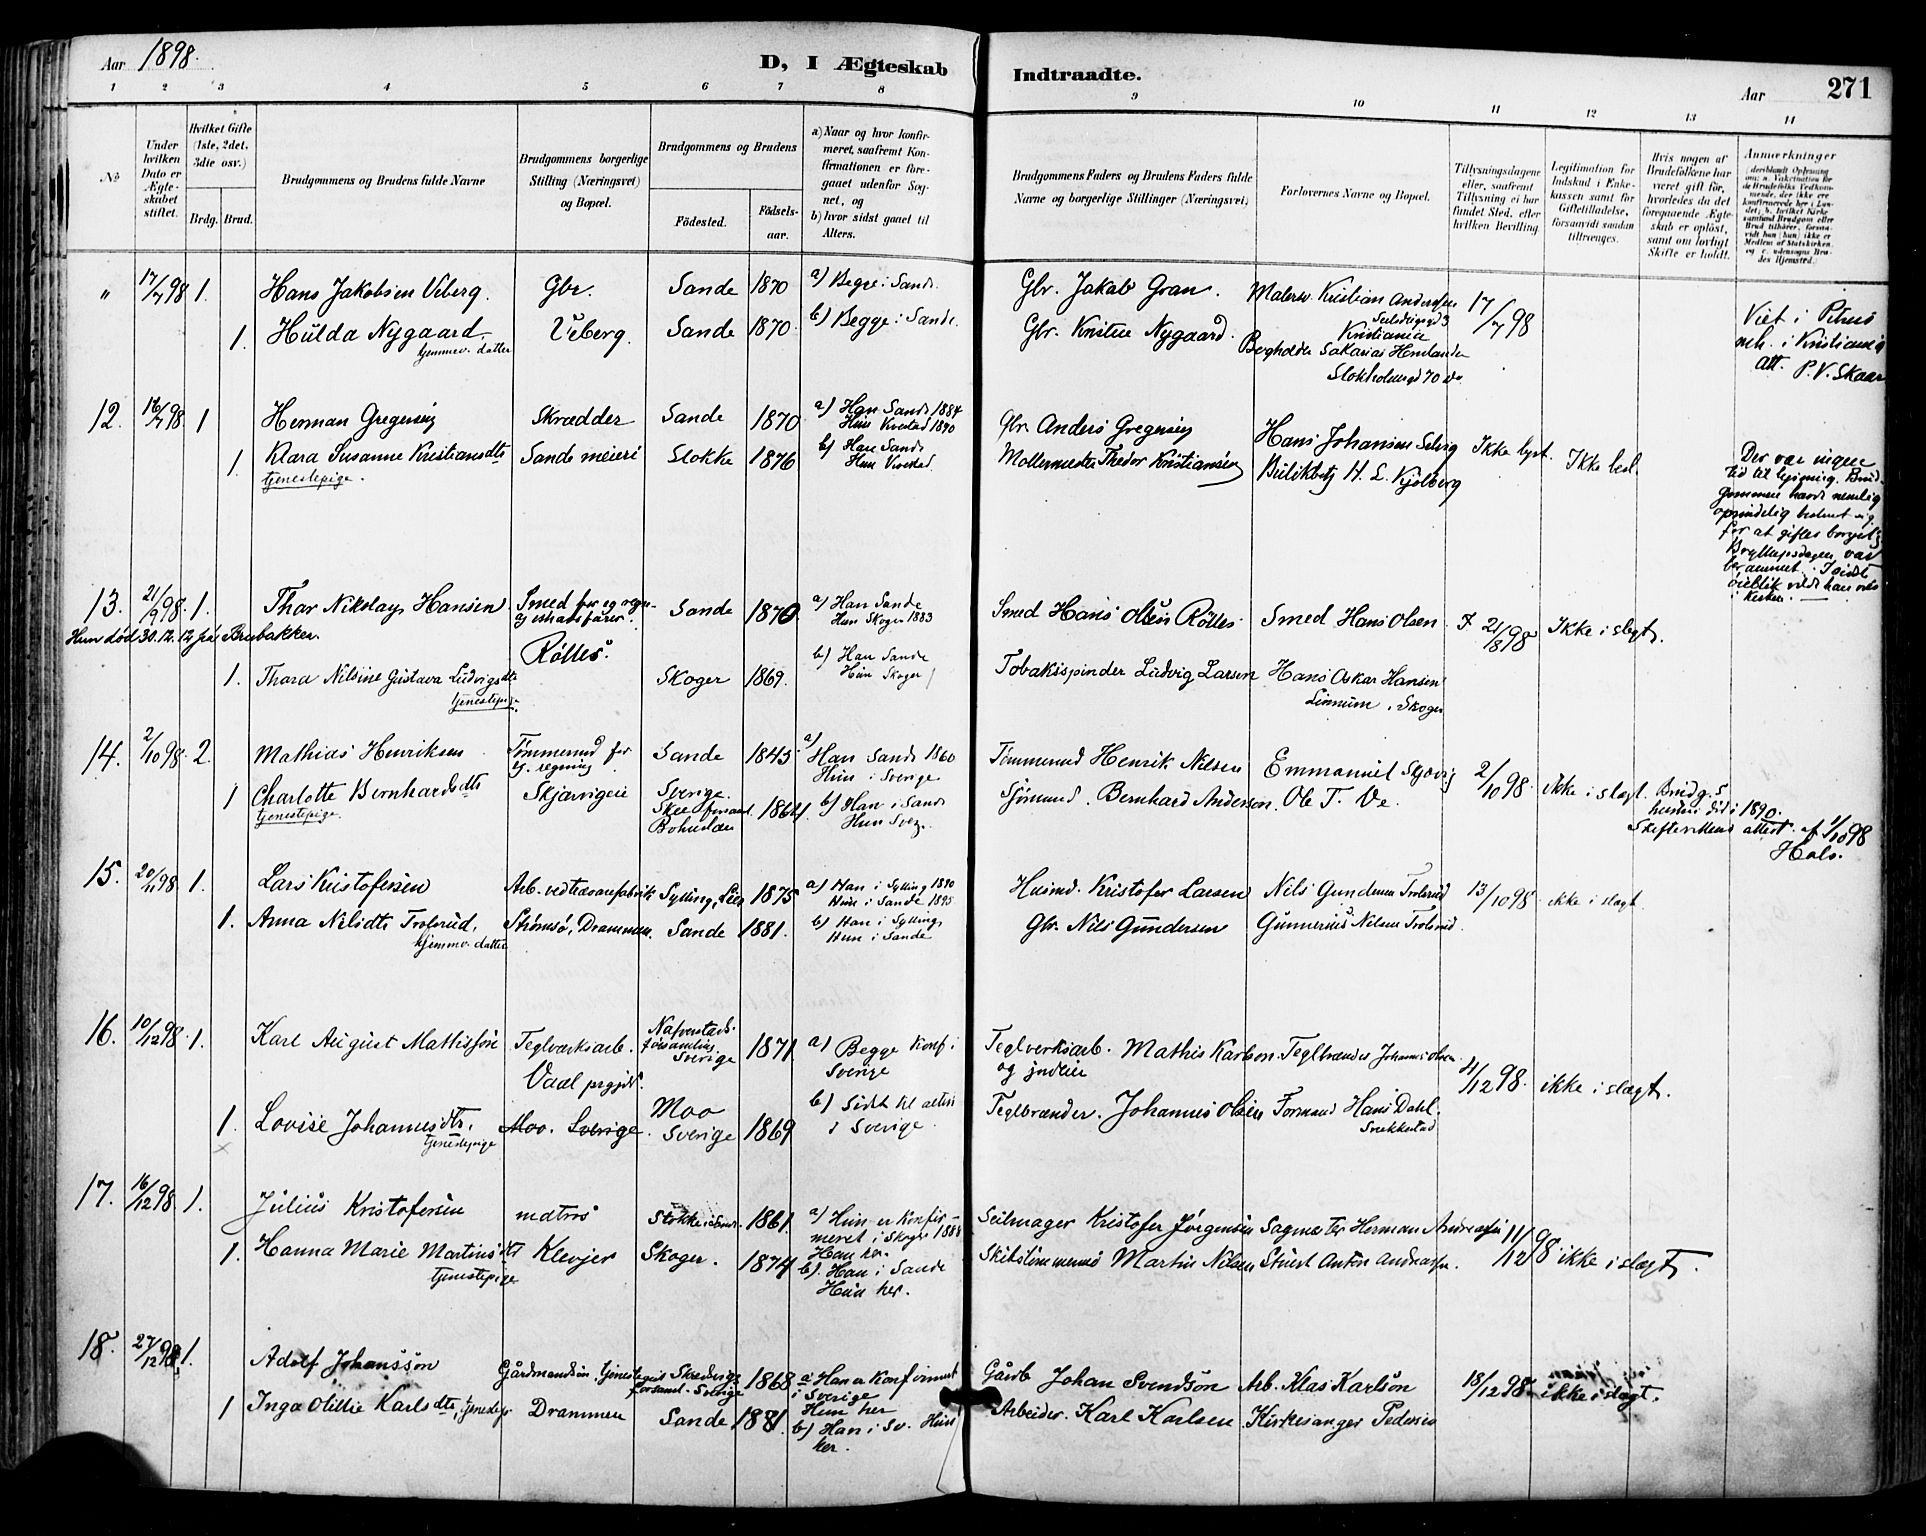 Aar 1898.
D, I Ægteskab
Indtraadte.
Aar
271
1 2 3 4 5 6 7 8 9 10 11 12 13 14
№
Under hvilken Dato er Ægteskabet stiftet.
Hvilket Gifte (1ste, 2det, 3die osv.)
Brdg. Brud.
Brudgommens og Brudens fulde Navne
Brudgommens borgerlige Stilling (Næringsvei) og Bopæl.
Brudgommens og Brudens
Födested.
Födselsaar.
a) Naar og hvor konfirmeret, saafremt Konfirmationen er foregaaet udenfor Sognet, og
b) hvor sidst gaaet til Alters.
Brudgommens Faders og Brudens Faders fulde Navne og borgerlige Stillinger (Næringsvei)
Forlovernes Navne og Bopæl.
Tillysningsdagene eller, saafremt Tillysning ei har fundet Sted, efter hvilken Bevilling
Legitimation for Indskud i Enkekassen samt for Giftetilladelse, forsaavidt saadan tiltrænges.
Hvis nogen af Brudefolkene har været gift för, hvorledes da det foregaaende Ægteskab er oplöst, samt om lovligt Skifte er holdt.
Anmærkninger
" 17/7 98 1. Hans Jakobsen Veberg. Gbr. Sande 1870 a) Begge i Sande. Gbr. Jakob Gran. Malersv. Kristian Andersen 17/7 98
Kristiania
1. Hulda Nygaard. Veberg. Sande 1870 b) Begge i Sande. Gbr. Kristen Nygaard.
hjemmev. datter
Viet i Petrus
att. P. V. Skaar
12. 98 1 Herman Gregersen Skrædder Sande 1870 a) Han Sande 1884
Anders Gregersen Hans Johansen Selvig Ikke lyst. Ikke besl.
1. Klara Susanne Kristiansdtr Sande meieri Stokke 1876 b) Han Sande
Møllemester Thedor Kristiansen H. L. Kjølberg
tjenestepige.
Der var ingen
tid til lysning. Brud
gommen havde nemlig
oprindelig bestemt sig
for at giftes borgerl.
Bryllupsdagen var
berammet. I sidste
öieblik vilde han vies
i kirken.
13. 98. 1. Thar Nikolay Hansen Smed for eg. regn. Sande 1870 a) Han Sande
Hun Skoger 1883
Smed Hans Olsen Röltes Smed Hans Olsen 21/8 98 Ikke i slegt.
Hun död 30.12.12 paa Brubakken.
Röltes.
b) Han Sande
Hun Skoger
1. Thara Nilsine Gustava Ludvigsdtr Skoger 1869. Tobakspinder Ludvig Larsen Hans Oskar Hansen
tjenestepige
Linnum, Skoger
14. 2/10 98. 2. Mathias Henriksen Tömmermd for eg. regning Sande 1845 a) Han Sande 1860
Hun i Sverige
Tömmermd Henrik Nilsen Emmanuel Skovig 2/10 98. ikke i slagt.
1 Charlotte Bernhardsdtr Skjærvigen Sverige 1864 b) Han i Sande
Sjömand. Bernhard Anderson. Ole T. Ve.
tjenestepige. Bohuslän
hustru död i 1890.
Skifterettens attest af 1/10 98
15. 20/11 98. 1. Lars Kristofersen Arb. ved trævarefabrik Sylling, Lier 1875 a) Han i Sylling 1890
Hun i Sande 1895
Husmd. Kristofer Larsen Nils Gundersen Trolerud 13/10 98 ikke i slagt
1. Anna Nilsdtr Trolerud, Strømsö, Drammen. Sande 1881. b) Han i Sylling
Hun i Sande
hjemmev. datter
Gbr. Nils Gundersen Gunnerius Nilsen Trolerud.
16. 10/12 98. 1. Karl August Mattisson Teglverksarb. Nafverstads forsamling Sverige 1871 a) Begge konf. i Sverige
Teglverksarb. Mathis Karlson Teglbrænder Johannes Olsen 4/12 98. ikke i slægt.
Vaal prgjld.
1. Lovise Johannesdtr. Moo. Sverige. Moo Sverige 1869 b) Sidst til alters i Sverige
tjenestepige
Teglbrænder. Johannes Olsen Formand Hans Dahl.
17. 16/12 98. 1. Julius Kristofersen matros Stokke 1861. a) Hun er konfirmeret i Skoger 1888
Han her.
Seilmager Kristofer Jörgensen Sagmester Herman Andreassen 11/12 98 ikke i slægt.
1. Hanna Marie Martinsdtr Klevjer Skoger. 1874 b). Han i Sande
Hun her.
tjenestepige
Skibstömmermd Martin Nilsen Stuert Anton Andreassen.
18. 27/12 98. 1. Adolf Johansson Gårdmandsön, Skredsvigs forsaml. Sverige 1868 a) Han er konfirmert i Sverige
Hun her
Gårdb Johan Svendsön Arb. Klas Karlson 18/12 98 ikke i slagt.
1 Inga Otillie Karlsdtr, Drammen Sande 1881 b) Han i Sv. Hun her.
Arbeider. Karl Karlsen Kirkesanger Pedersen